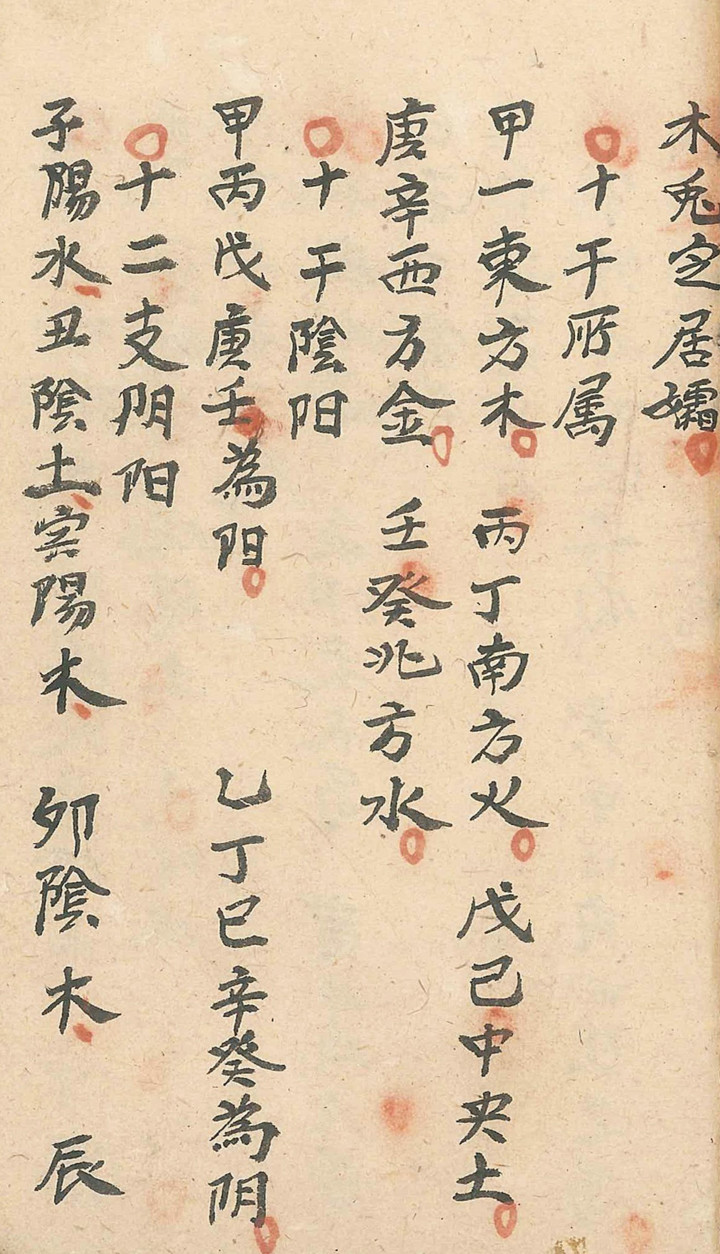 木兔定居孀
十干所属
甲一東方木 丙丁南方火 戊己中央土
庚辛西方金 壬癸兆方水
十干陰阳
甲丙戊庚壬為阳 乙丁巳辛癸為阴
十二支阴阳
子陽水丑陰土寅陽木 卯陰木 辰